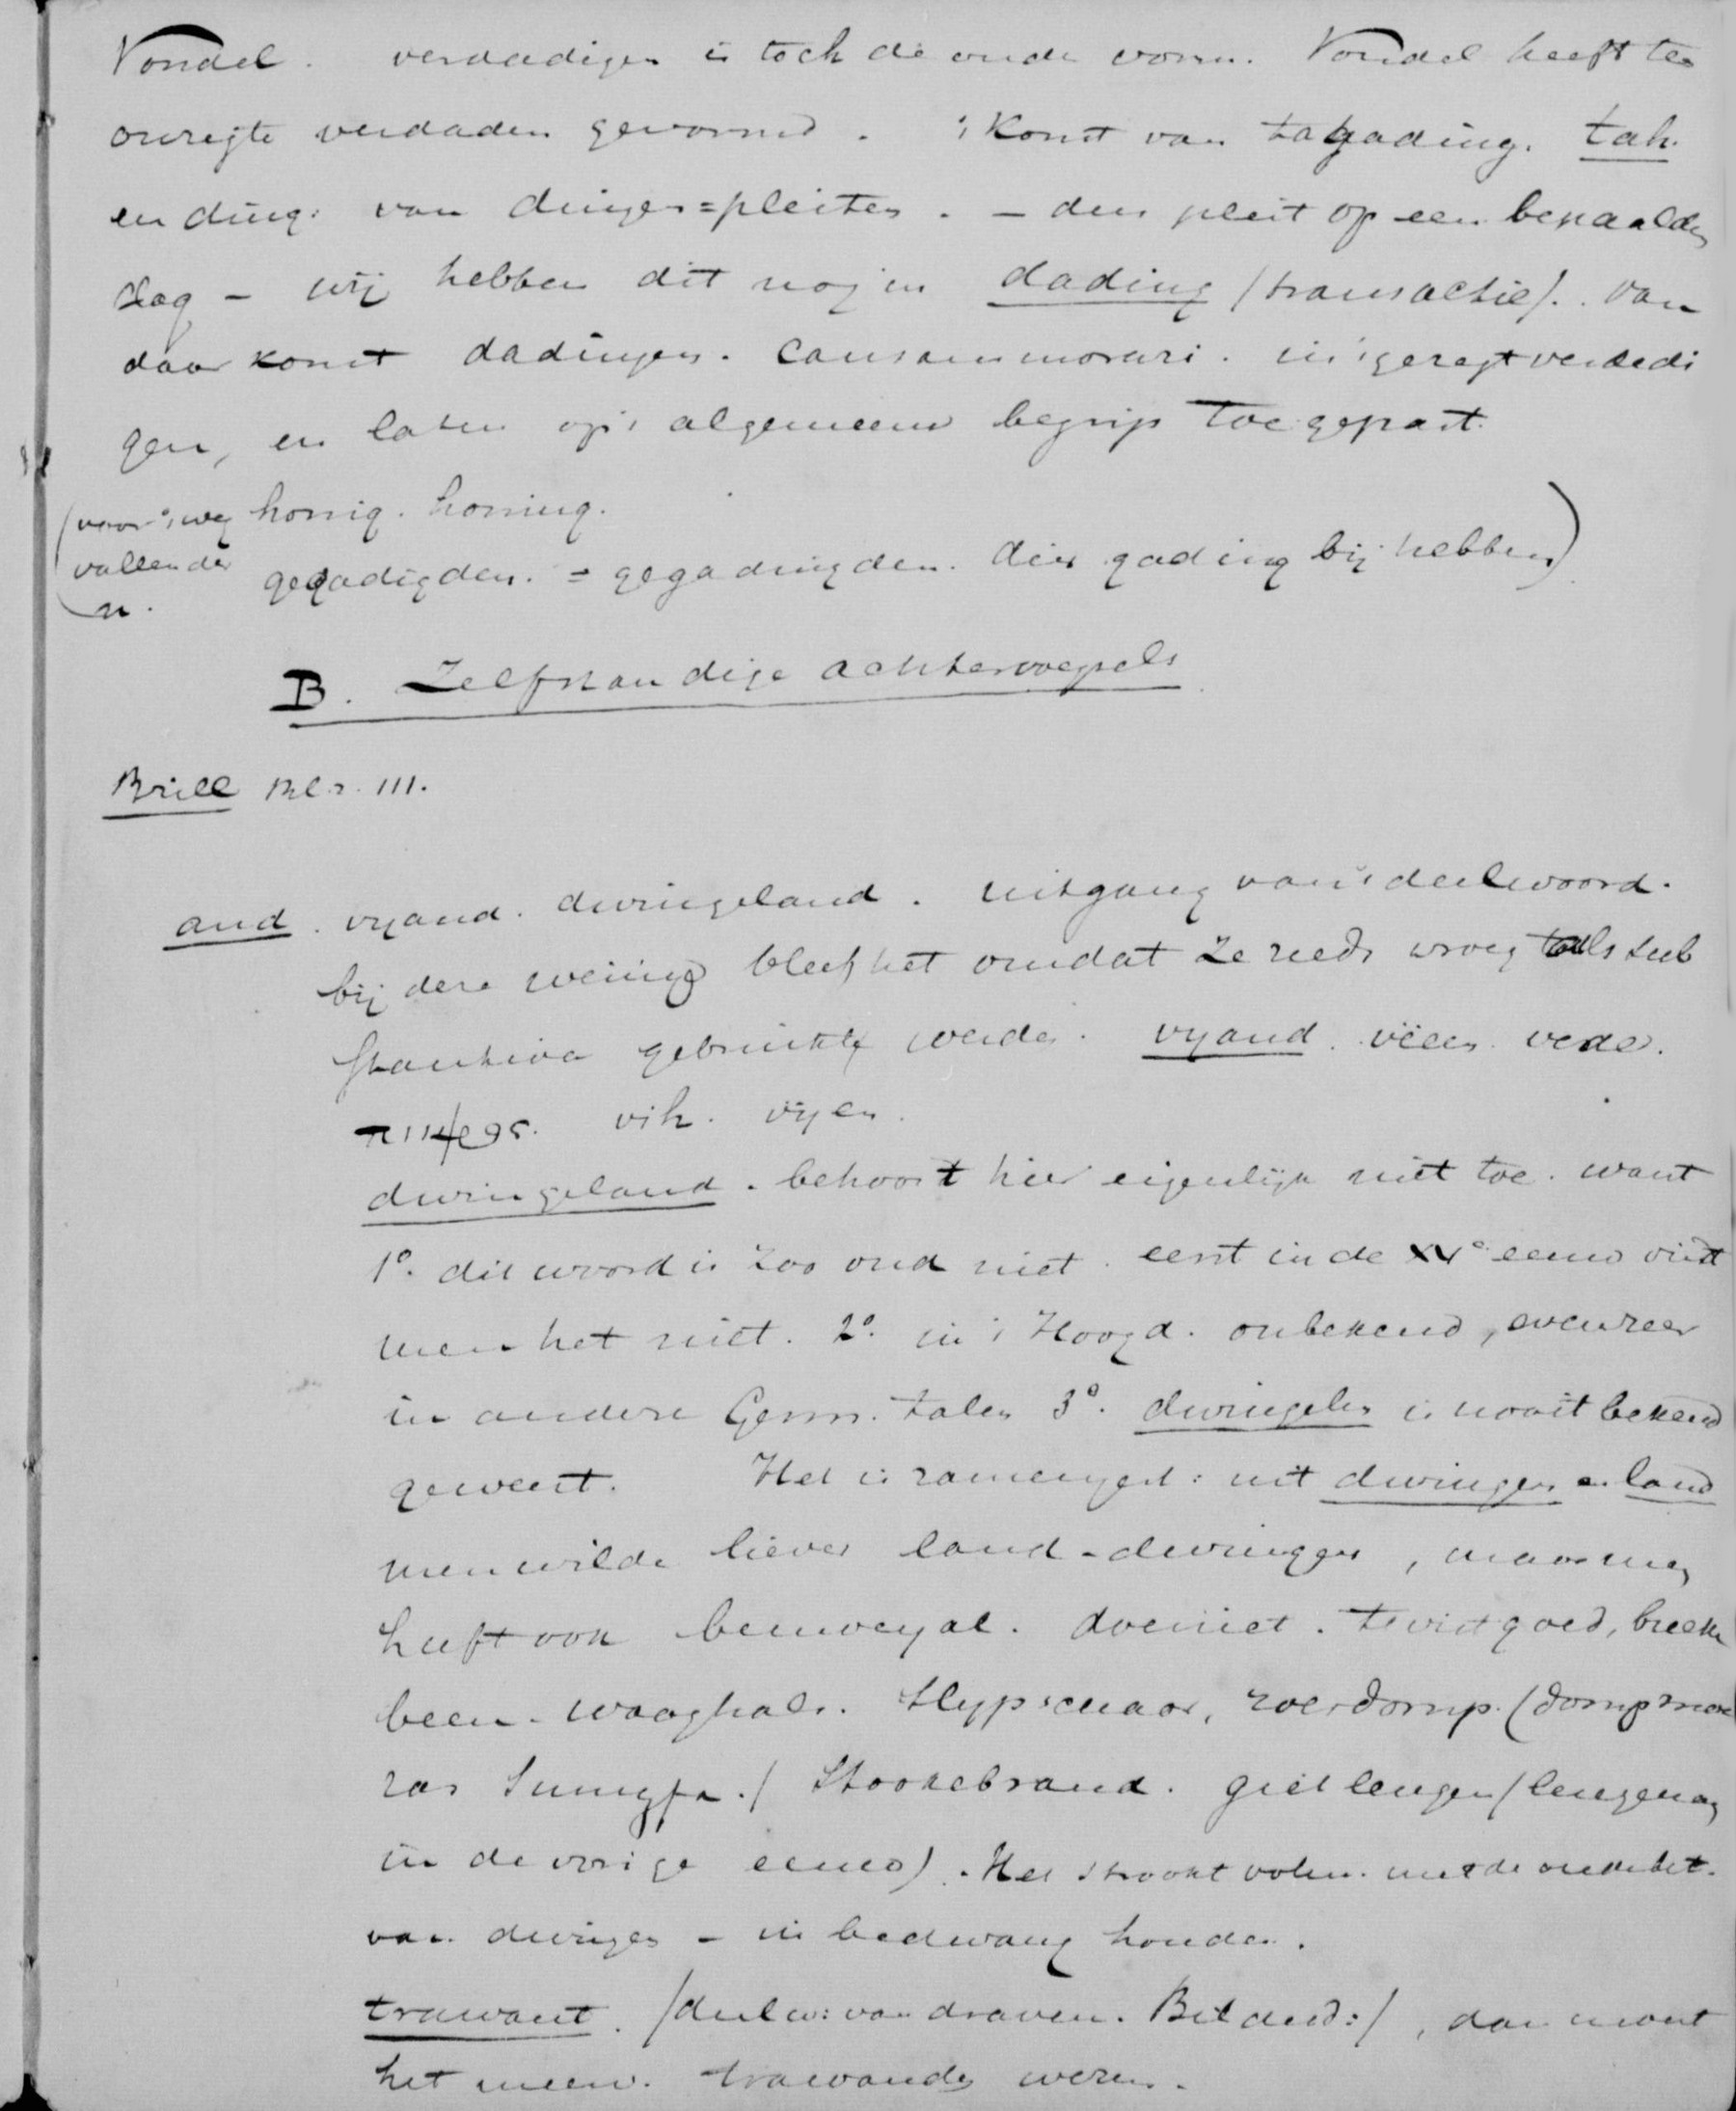 Vondel. verdadigen is toch de oude vorm. Vondel heeft ten
onregte verdaden gevormd. 't Komt van tagading. tah
en ding: van dingen = pleiten. – den pleit op een bepaalden
dag – wij hebben dit nog in dading /transactie/. van
daar komt dadingen. causam morari. in 't geregt verdedi
gen, en laten op 't algemeene begrip toegepast.
honig. honing.
(voor 't weg
vallen der
n.
gegadigden. = gegadingden. die gading bij hebben)
B. Zelfstandige achtervoegsels
Brill Blz. 111.
and. vyand. dwingeland. uitgang van 't deelwoord.
bij deze weinige bleef het omdat ze reeds vroeg als sub
stantiva gebruikt werden. vyand. viën. vede.
vih. vijen.
dwingeland. behoort hier eigenlijk niet toe. want
1º. dit woord is zoo oud niet. eerst in de XVe eeuw vindt
men het niet. 2º. in 't Hoogd. onbekend, evenzeer
in andere Germ. talen 3º. dwingelen is nooit bekend
geweest. Het is zamengest: uit dwingen en land
men wilde liever land-dwinger, maar men
heeft ook bemoeyal. doeniet. twistgoed, breeke
been. waaghals. Slypschaar, roerdomp. (domp moe
ras Sumpf./ Stookebrand. giet lengen (lengen
in de vorige eeuw). Het strookt volk. met de oude bet.
van dwingen – in bedwang houden.
trawant. /deelw: van draven. Bilderd:/, dan moest
het meerv. trawanden wezen.